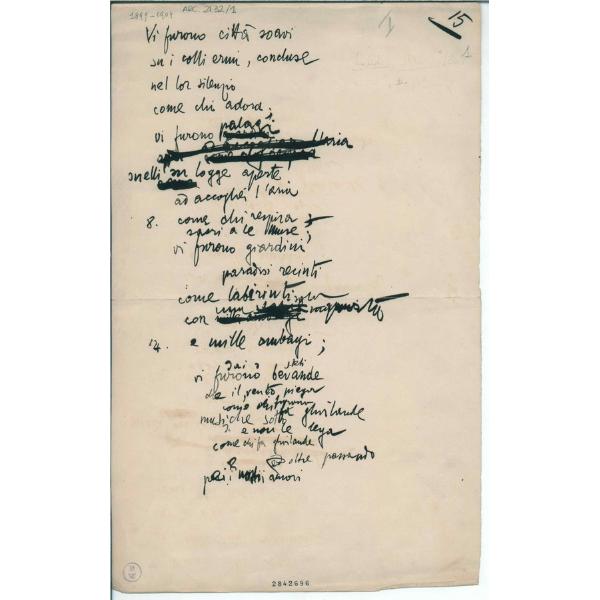 1899-1904
ARC. 21.32/1
1
15
1
Vi furono città soavi
su i colli ermi, concluse
nel lor silenzio
come chi adora;
vi furono palazzi
l'aria
snelli su logge aperte
ad accoglier l'aria
8. come chi respira
sposi a le Muse;
vi furono giardini
paradisi recinti
come labirinti
con
14. e mille ambagi;
vi furono bevande
che il vento piega
ghirlande
musiche sotto
e non le lega
come chi fa ghirlande
e oltre passando
pei nostri amori
2842696